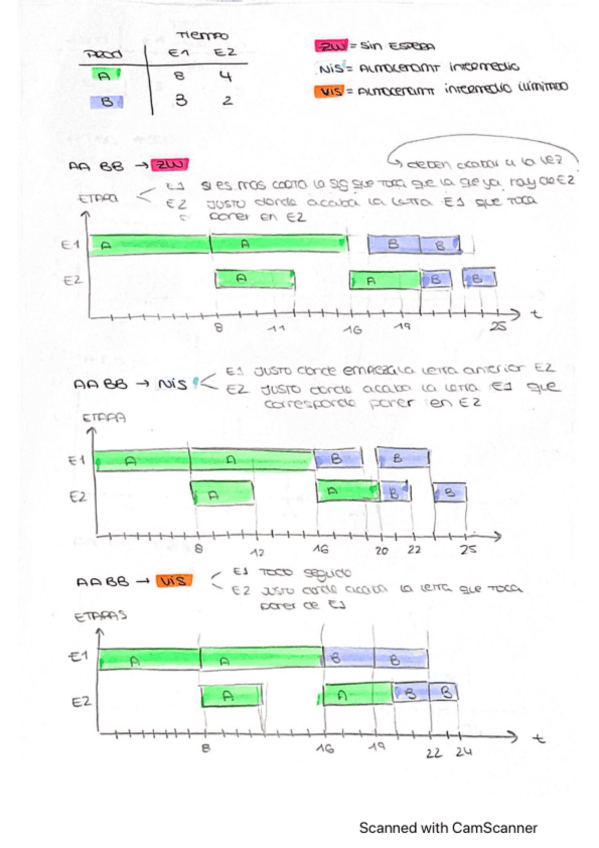 TIEMPO
PROD E1 E2
A 8 4
B 3 2
ZW = SIN ESPERA
NIS = ALMACENAMT INTERMEDIO
UIS = ALMACENAMT INTERMEDIO ILIMITADO
AA BB → ZW
deben acabar a la vez
ETAPA
E1 SI ES MAS CORTO LA SIG QUE TOCA QUE LA QUE YA HAY DE E2
E2 JUSTO donde acaba la letra E1 que toca
poner en E2
E1 A A B B
E2 A A B B
8 11 16 19 25 t
AA BB → NIS
E1 JUSTO donde empieza la letra anterior E2
E2 JUSTO donde acaba la letra E1 que
corresponde poner en E2
ETAPA
E1 A A B B
E2 A A B B
8 12 16 20 22 25
AA BB → UIS
E1 TODO seguido
E2 JUSTO donde acaba la letra que toca
poner de E1
ETAPAS
E1 A A B B
E2 A A B B
8 16 19 22 24 t
Scanned with CamScanner